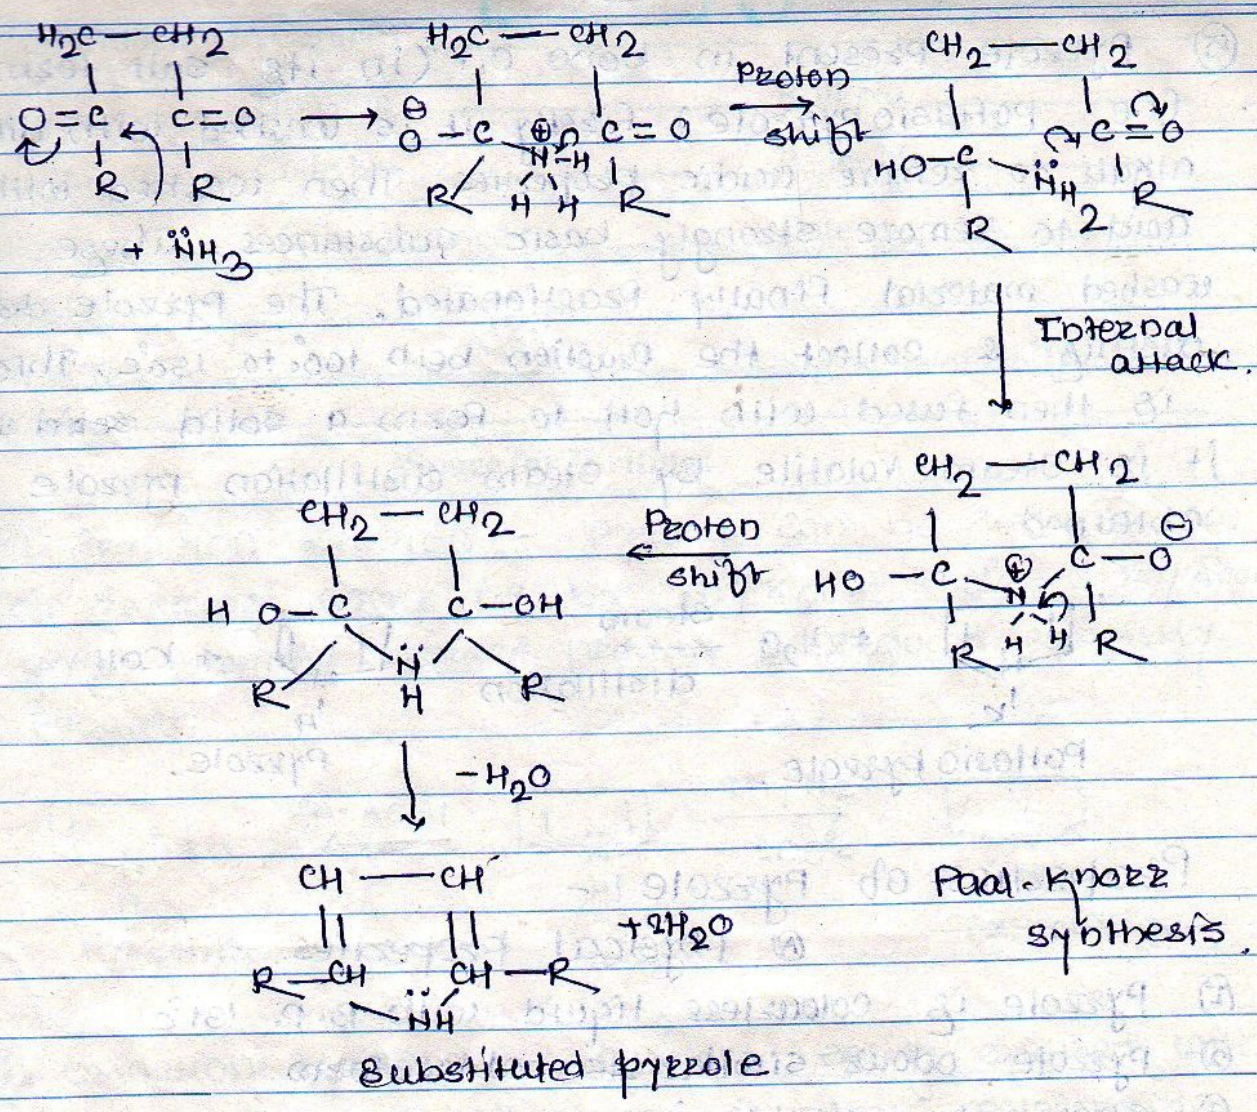 H2C — CH2
O=C C=O
R R
+ N̈H3
⟶
H2C — CH2
⊖
O –C ⊕ C=O
N–H
R H H R
Proton
shift
CH2 — CH2
HO–C C=O
N̈H2
R R
Internal
attack.
CH2 — CH2
HO –C ⊕ C–O ⊖
N
H H
R R
Proton
shift
CH2 — CH2
H O–C C–OH
R N̈ R
H
–H2O
CH — CH
R–CH CH–R
N̈H
+2H2O
Substituted pyrrole
Paal-knorr
synthesis.